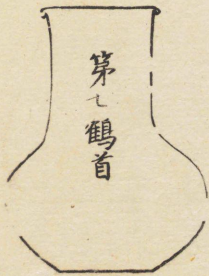 第七鶴首